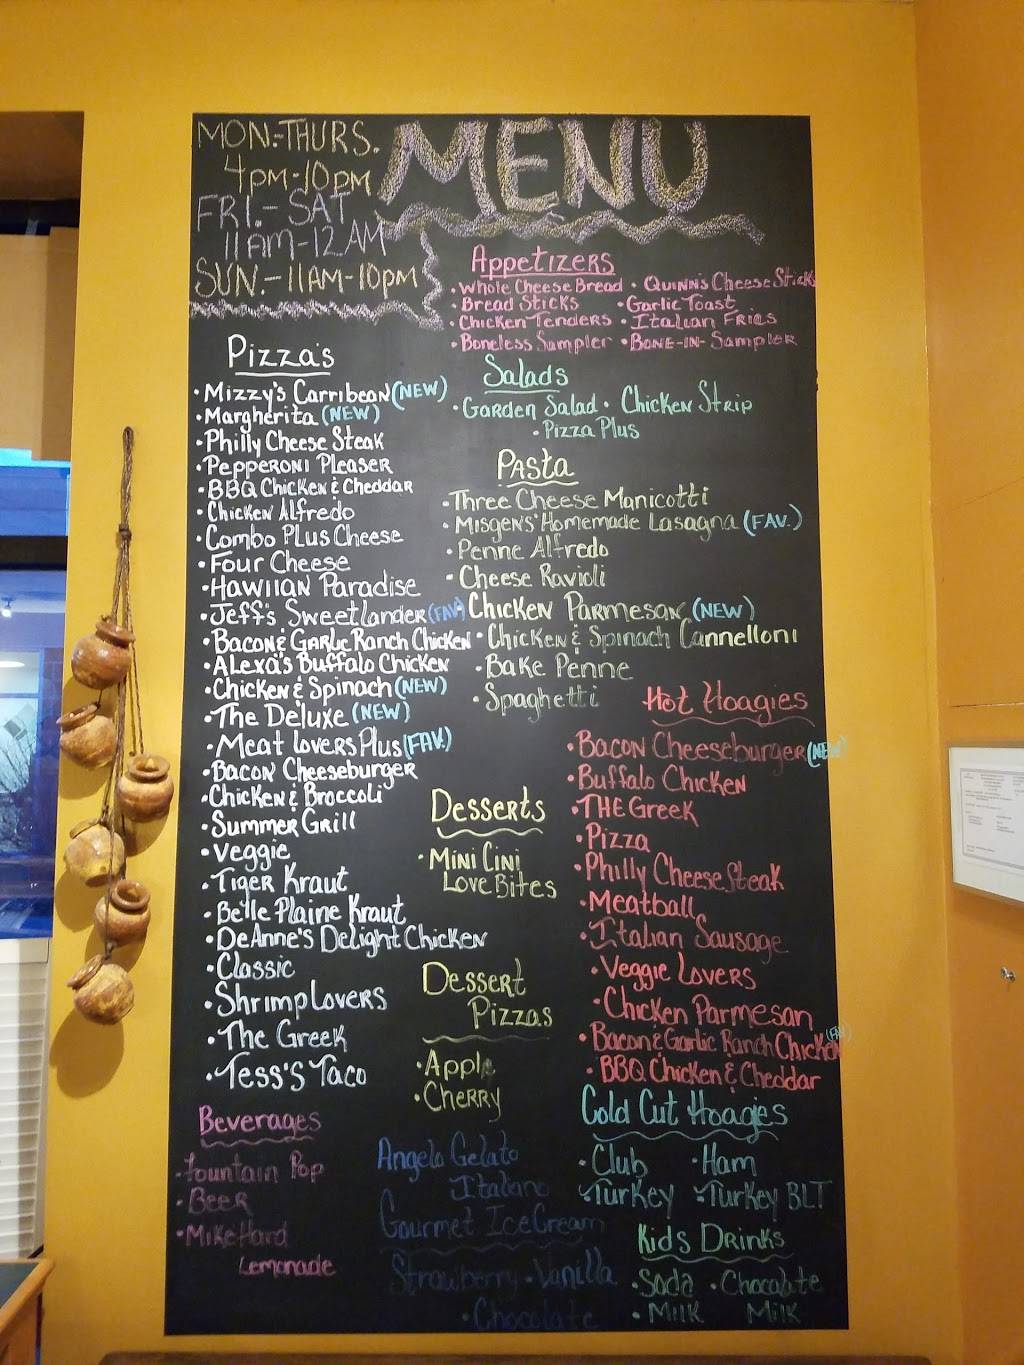 MENU
MON.-THURS.
4PM-10PM
FRI.- SAT
11AM-12AM
SUN.-11AM-10PM
Appetizers
• Whole Cheese Bread • Quinn's Cheese Sticks
• Bread Sticks • Garlic Toast
• Chicken Tenders • Italian Fries
• Boneless Sampler • Bone-in- Sampler
Pizza's
• Mizzy's Carribean (NEW)
• Margherita (NEW)
• Philly Cheese Steak
• Pepperoni Pleaser
• BBQ Chicken & Cheddar
• Chicken Alfredo
• Combo Plus Cheese
• Four Cheese
• Hawiian Paradise
• Jeff's Sweetlander (FAV)
• Bacon & Garlic Ranch Chicken
• Alexa's Buffalo Chicken
• Chicken & Spinach (NEW)
• The Deluxe (NEW)
• Meat Lovers Plus (FAV.)
• Bacon Cheeseburger
• Chicken & Broccoli
• Summer Grill
• Veggie
• Tiger Kraut
• Belle Plaine Kraut
• DeAnne's Delight Chicken
• Classic
• Shrimp Lovers
• The Greek
• Tess's Taco
Salads
• Garden Salad • Chicken Strip
• Pizza Plus
Pasta
• Three Cheese Manicotti
• Misgens' Homemade Lasagna (FAV.)
• Penne Alfredo
• Cheese Ravioli
Chicken Parmesan (NEW)
• Chicken & Spinach Cannelloni
• Bake Penne
• Spaghetti
Hot Hoagies
• Bacon Cheeseburger (NEW)
• Buffalo Chicken
• The Greek
• Pizza
• Philly Cheese Steak
• Meatball
• Italian Sausage
• Veggie Lovers
• Chicken Parmesan
• Bacon & Garlic Ranch Chicken (FAV)
• BBQ Chicken & Cheddar
Desserts
• Mini Cini
Love Bites
Dessert
Pizzas
• Apple
• Cherry
Cold Cut Hoagies
• Club • Ham
• Turkey • Turkey BLT
Beverages
• Fountain Pop
• Beer
• Mike Hard
Lemonade
Angelo Gelato
Italiano
Gourmet Ice Cream
Strawberry • Vanilla
• Chocolate
Kids Drinks
• Soda • Chocolate
• Milk Milk